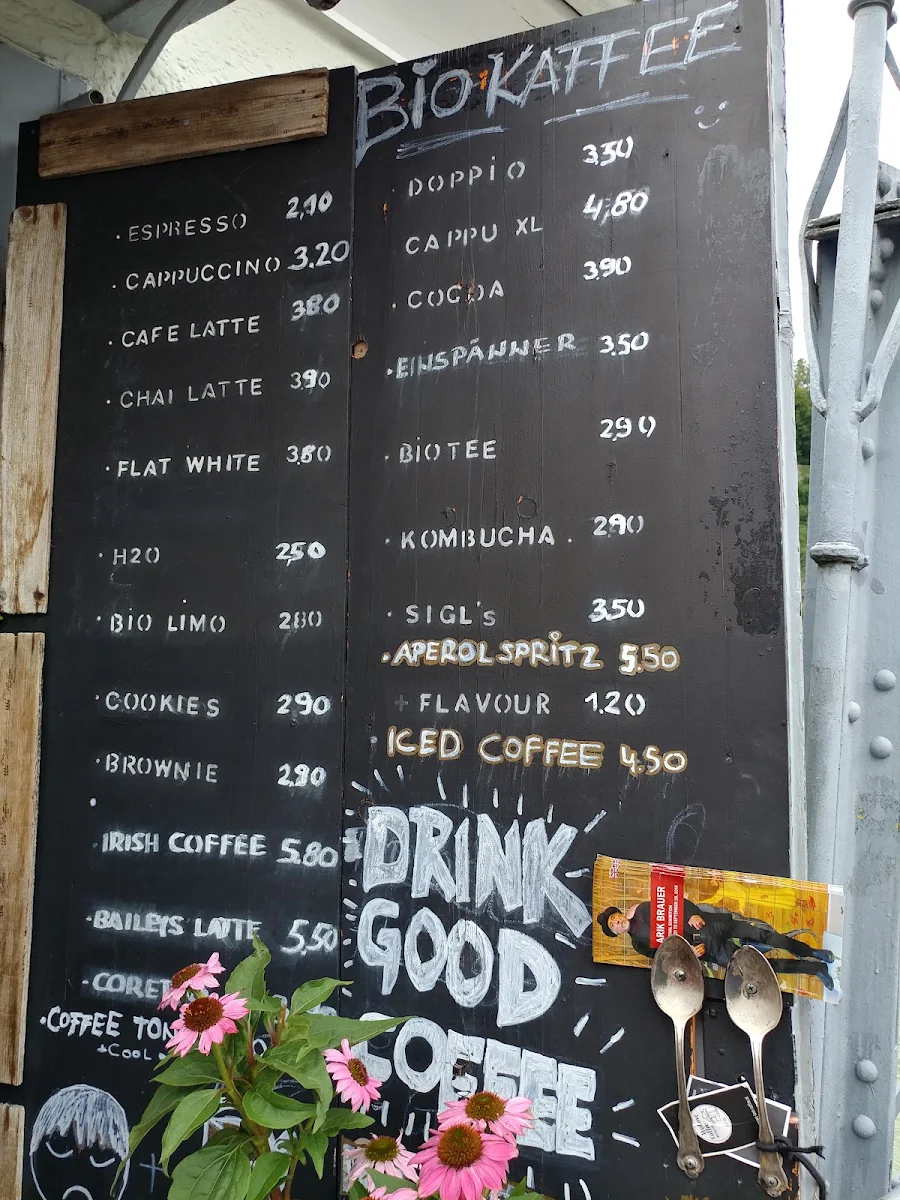 BIOKAFFEE
ESPRESSO 2,10
CAPPUCCINO 3.20
CAFE LATTE 3.80
CHAI LATTE 3.90
FLAT WHITE
H2O 2,50
BIO LIMO 2.80
COOKIES 2.90
BROWNIE 2.90
IRISH COFFEE 5.80
BAILEYS LATTE 5,50
COFFEE
COOL
DOPPIO 3.50
CAPPU XL 4,80
COCOA 3.90
EINSPÄNNER 3.50
BIO TEE 2.90
KOMBUCHA . 2.90
SIGL's 3.50
APEROL SPRITZ 5.50
+ FLAVOUR 1.20
ICED COFFEE 4.50
DRINK
GOOD
COFFEE
ARIK BRAUER